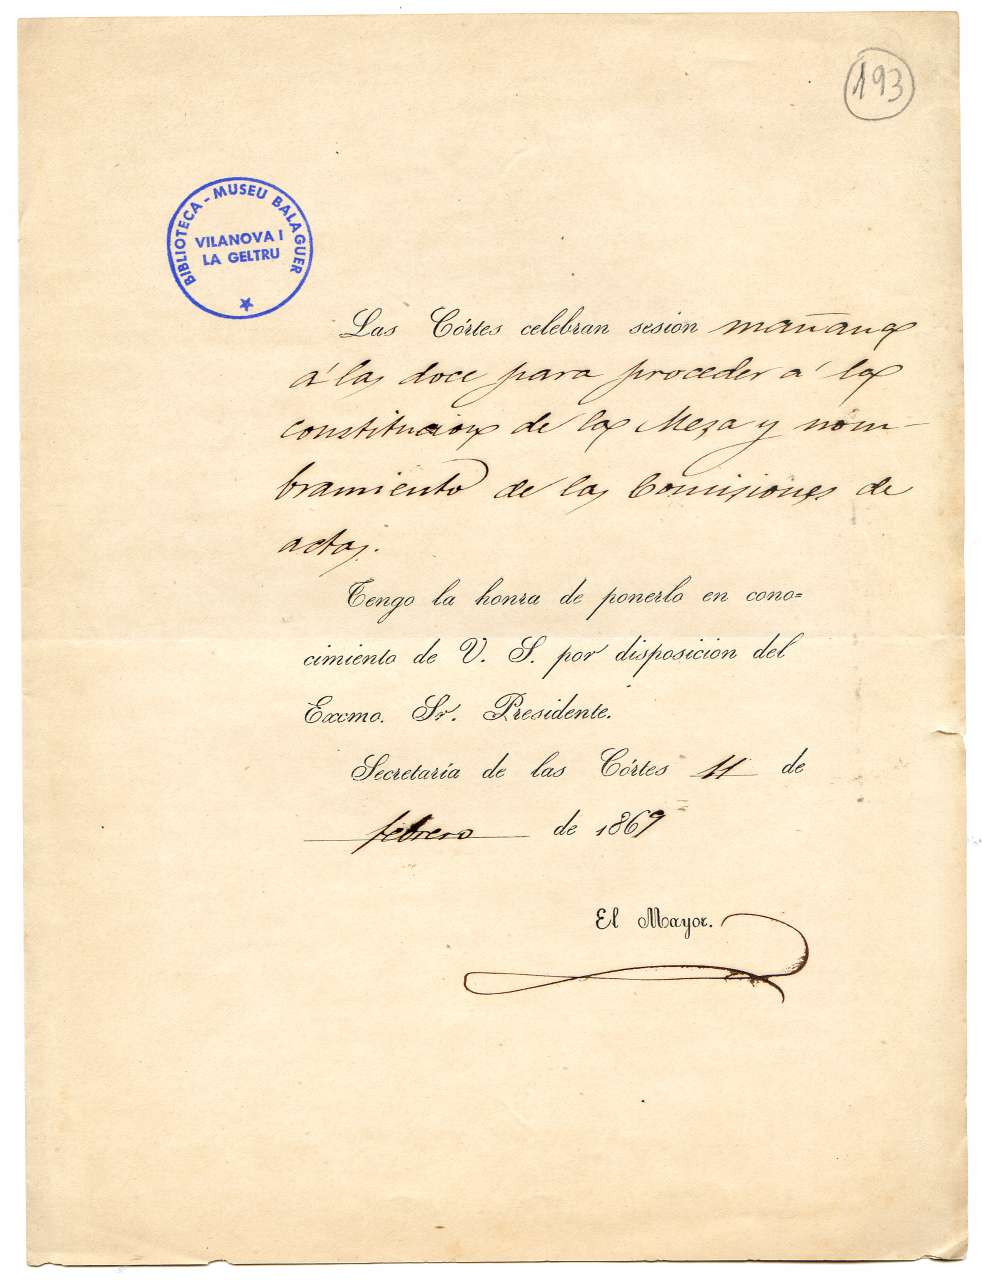 193
BIBLIOTECA - MUSEU BALAGUER
VILANOVA I
LA GELTRU
Las Córtes celebran sesion mañana
á las doce para proceder á la
constitucion de la Mesa y nom-
bramiento de las Comisiones de
actas.
Tengo la honra de ponerlo en cono=
cimiento de V. S. por disposicion del
Excmo. Sr. Presidente.
Secretaría de las Córtes 11 de
febrero de 1869
El Mayor.